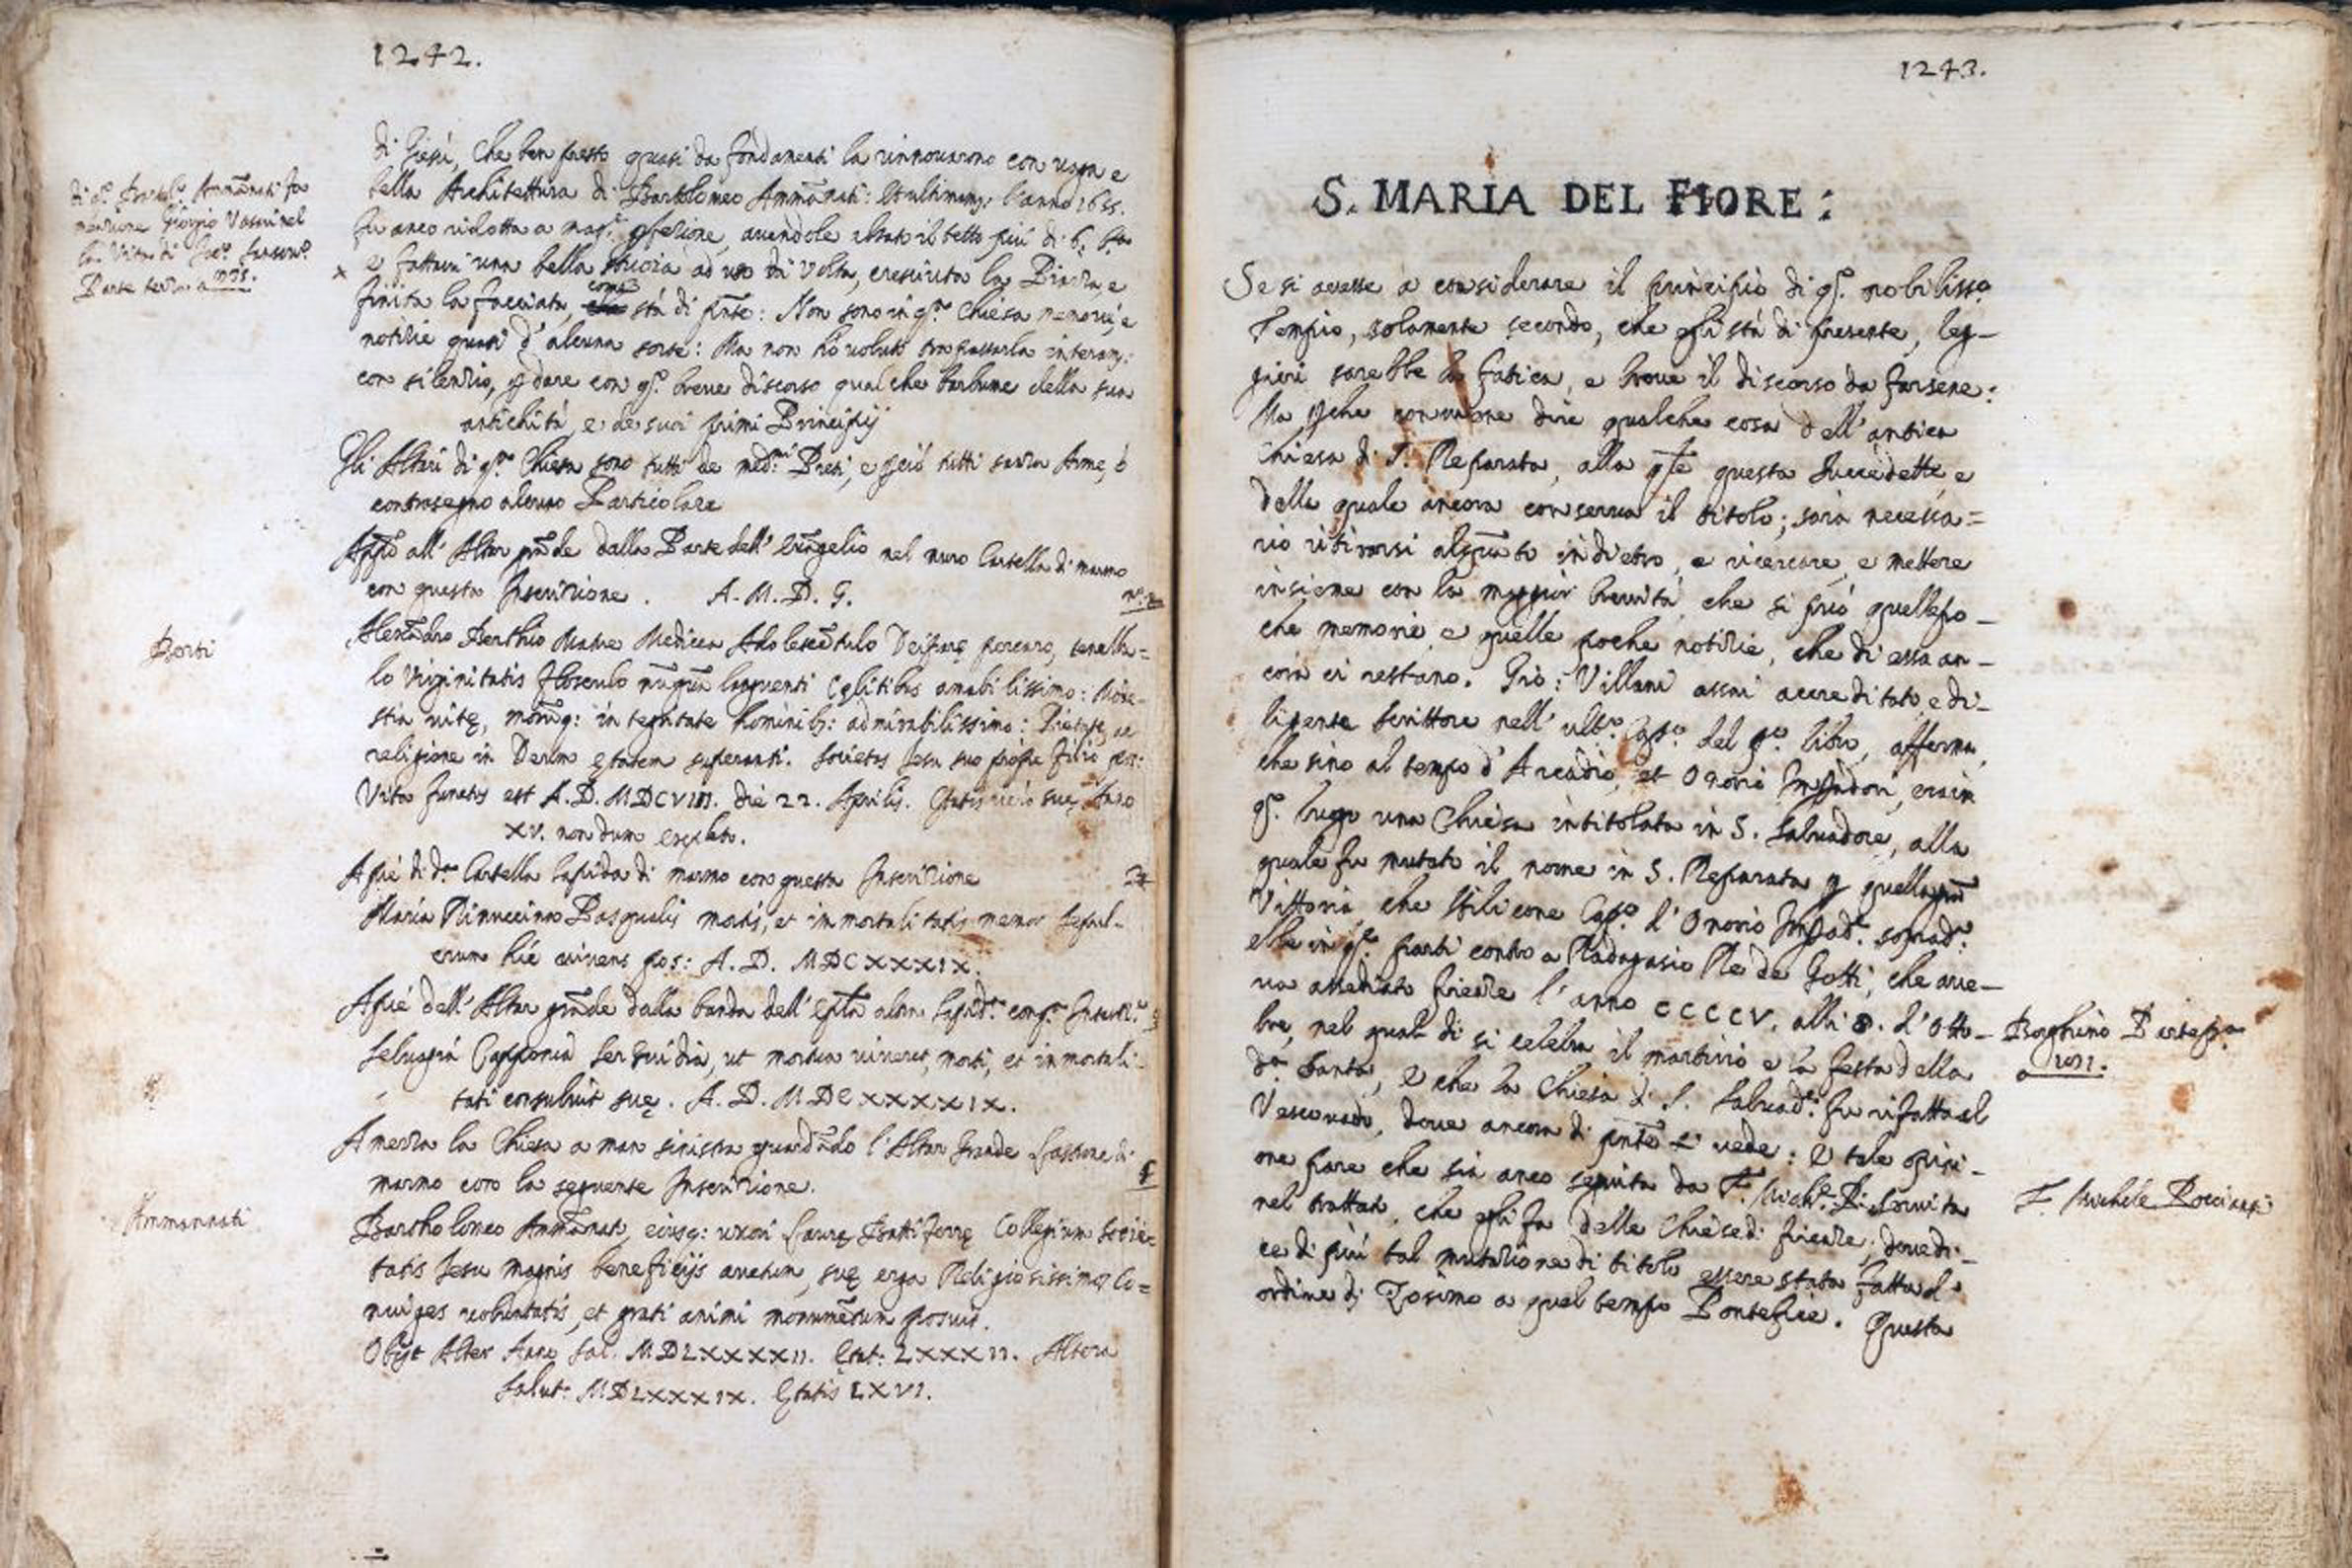 1242.
di Giesù, che ben presto quasi da fondamenti la rinnovarono con vaga e
bella Architettura di Bartolomeo Ammãnati: Et ultimamͭͤ: l'anno 1655.
fu anco ridotta a magͬ. pfezione, avendole alzato il tetto più di 6. bͣ
e fattavi una bella stuoia ad uso di Volta, cresciuta la Piazza, e
finita la facciata, come stà di pñte: Non sono in qͭͣ Chiesa memorie, e
notizie quasi d'alcuna sorte: Ma non hò voluto trapassarla interamͭͤ:
con silenzio, p dare con qͦ breve discorso qualche barlume della sua
antichità, e de suoi primi Principij
Gli Altari di qͭͣ Chiesa sono tutti de medͫͥ Preti, e pciò tutti senza Arme, ò
contrasegno alcuno Particolare
Appͦ all' Altar grãde dalla Parte dell' Evãgelio nel muro Cartella di marmo
con questa Inscrizione. A. M. D. G.
Alexãdro Berthio Matre Medicea Adolescẽtulo Deiparę percaro, tenellu=
lo Virginitatis flosculo nũquã languenti Cęlitibus amabilissimo: Mode-
stia vitę, morũq: integritate hominibꝫ: admirabilissimo: Pietate, ac
religione in Deum ętatem superanti. Societas Jesu suo prope filio
Vita functus est A. D. MDCVIII. die 22. Aprilis. Ętatis vero suę Anno
XV. nondum expleto.
A piè di dͣ Cartella lapida di marmo con questa Inscrizione
Maria Rinuccina Pasqualis mortis, et immortalitatis memor Sepul-
crum hic vivens pos: A. D. MDCXXXIX.
A piè dell' Altar grãde dalla banda dell' Epͣla altra lapidͣ con qͣ Inscrizͤ
Selvagia Capponia Ser Guidia, ut mortua viveret, morti, et immortali-
tati consuluit suę. A. D. MDCXXXXIX.
A mezza la Chiesa a man sinistra guardãdo l'Altar Grande lastrone di
marmo con la seguente Inscrizione.
Bartholomeo Ammãnati, eiusq: uxori Laurę Battiferrę Collegium Socie=
tatis Jesu magnis beneficijs auctum, suę erga Religiosissimos Co=
niuges voluntatis, et grati animi monumẽtum posuit.
Obijt Alter Anno Sal. MDLXXXXII. Ętat: LXXXII. Altera
Salut: MDLXXXIX. Ętatis LXVI.
di qͦ Bartolͦ Ammãnati fa
menzione Giorgio Vasari nel
la Vita di Jacͦ Sansovͦ
Parte terza a
Berti
Ammannati
1243.
S. MARIA DEL FIORE:
Se si avesse a considerare il principio di qͦ nobilissͦ
Tempio, solamente secondo, che egli stà di presente, leg-
gieri sarebbe la fatica, e breve il discorso da farsene:
Ma pche conviene dire qualche cosa dell' antica
Chiesa di S. Reparata, alla qͣle questa succedette, e
della quale ancora conserva il titolo; sarà necessa=
rio ritirarsi alquãto indietro, e ricercare, e mettere
insieme con la maggior brevità, che si può quelle po-
che memorie, e quelle poche notizie, che di essa an-
cora ci restano. Gio: Villani assai accreditato, e di-
ligente scrittore nell' ultͦ. Capͦ. del pͦ. libro, afferma,
che sino al tempo d'Arcadio, et Onorio Impadori, era in
qͦ. luogo una Chiesa intitolata in S. Salvadore, alla
quale fu mutato il nome in S. Reparata p quella grã
Vittoria, che Stilicone Capͦ. d'Onorio Impadͤ. sopradͦ:
ebbe in qͤ. parti contro a Radagasio Re de Gotti, che ave-
va assediato Firenze l'anno CCCCV. alli 8. d'Otto-
bre, nel qual dì si celebra il martirio e la festa della
dͣ Santa, e che la Chiesa di S. Salvadͤ: fu rifatta al
Vescovado, dove ancora di pñte si vede: E tale opini-
one pare che sia anco seguita da F. Michͤ. P. Servita
nel trattato, che egli fa delle Chiese di Firenze, dove di-
ce di più tal mutazione di titolo essere stata fatta d'
ordine di Zosimo a quel tempo Pontefice. Questa
Borghino Parte pͣ
F. Michele Poccianti